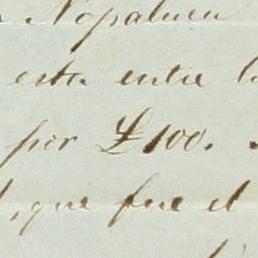 Nopaluca
esta entre l
por £100.
, que fue el